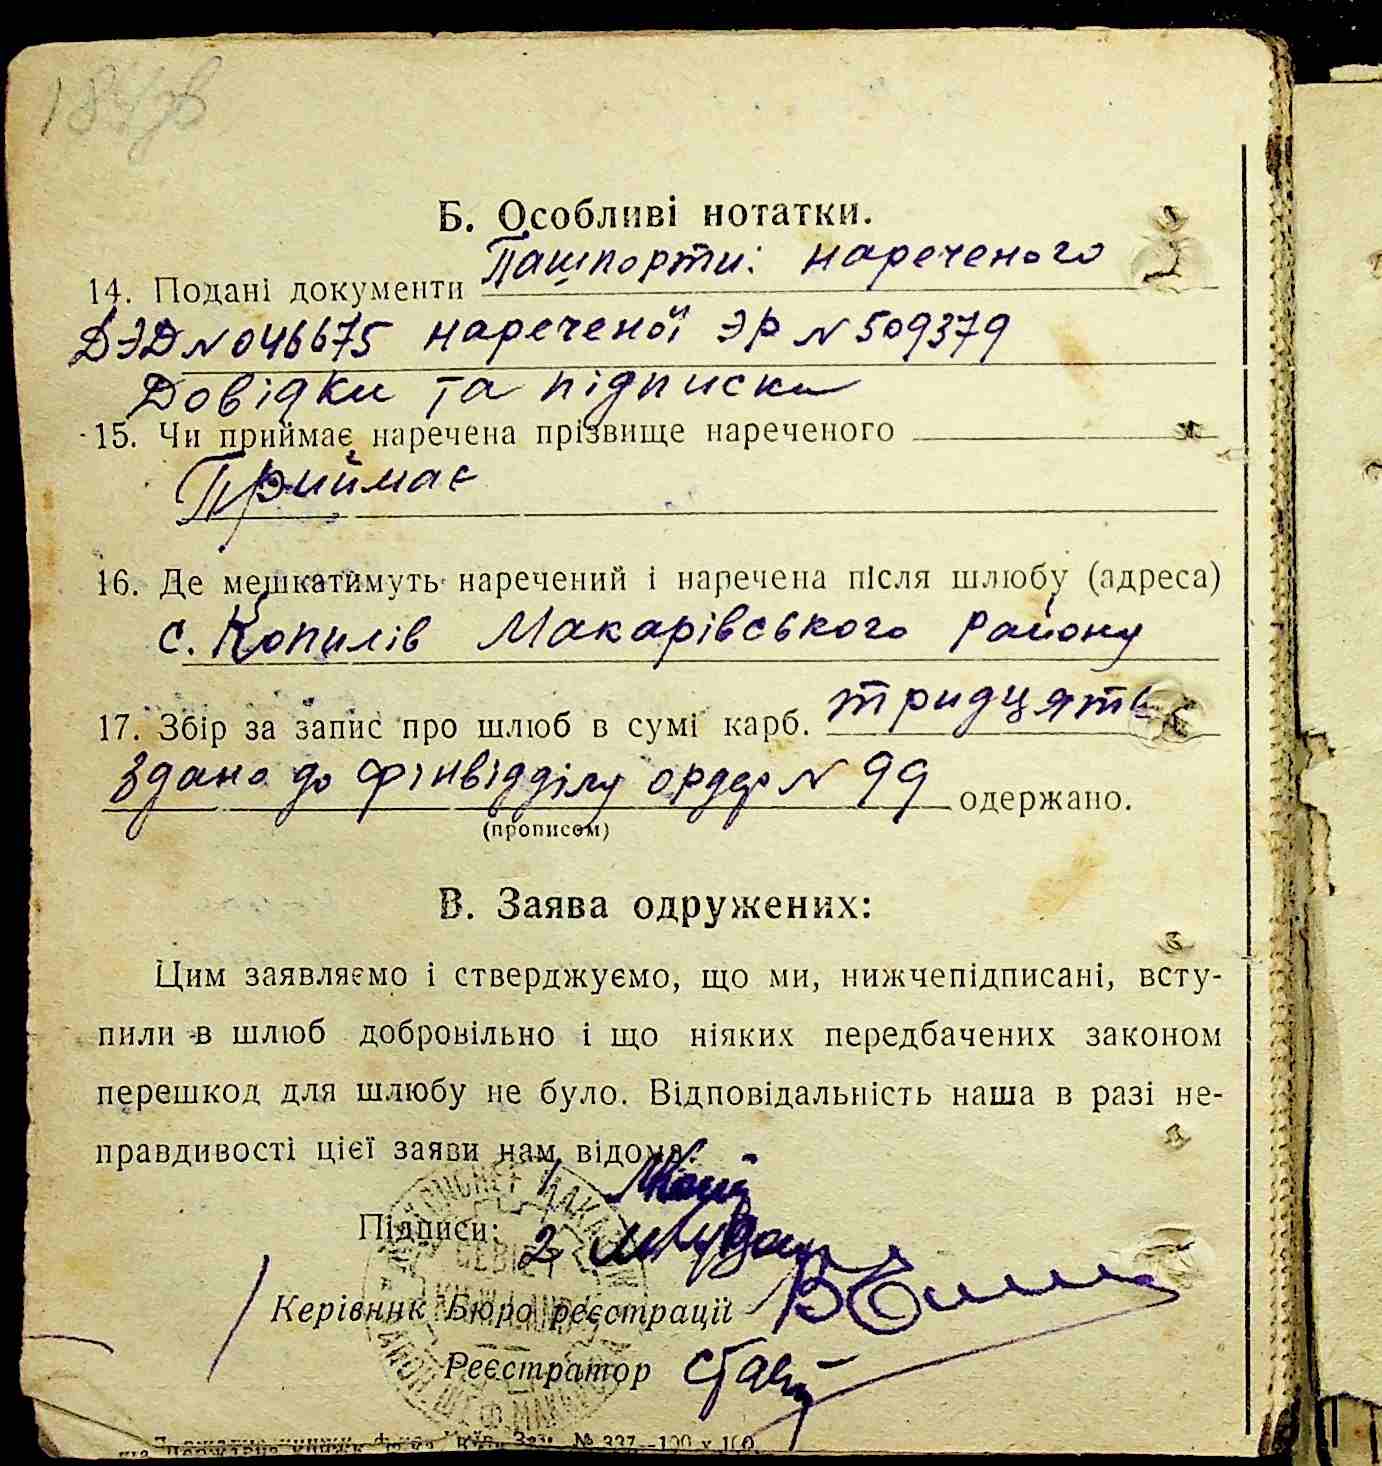 Б. Особливі нотатки.
14. Подані документи Пашпорти: нареченого
ДЭД №046675 нареченої ЭР №509379
Довідки та підписки
15. Чи приймає наречена прізвище нареченого
Приймає
16. Де мешкатимуть наречений і наречена після шлюбу (адреса)
с. Копилів Макарівського району
17. Збір за запис про шлюб в сумі карб. тридцять
Здано до фінвідділу ордер № 99 одержано.
(прописом)
В. Заява одружених:
Цим заявляємо і стверджуємо, що ми, нижчепідписані, всту-
пили в шлюб добровільно і що ніяких передбачених законом
перешкод для шлюбу не було. Відповідальність наша в разі не-
правдивості цієї заяви нам відома.
1
Підписи: 2
Керівник Бюро реєстрації
Реєстратор
№ 337—100 х 100.